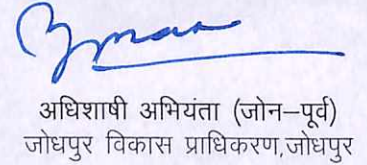 अधिशाषी अभियंता (जोन–पूर्व)
जोधपुर विकास प्राधिकरण,जोधपुर